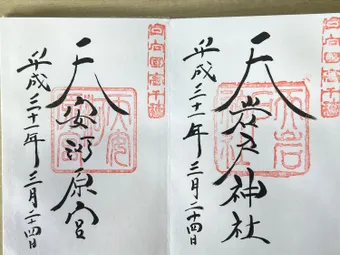 日向國高千穂
天岩戸神社
平成三十一年三月二十四日
日向國高千穂
天安河原宮
平成三十一年三月二十四日